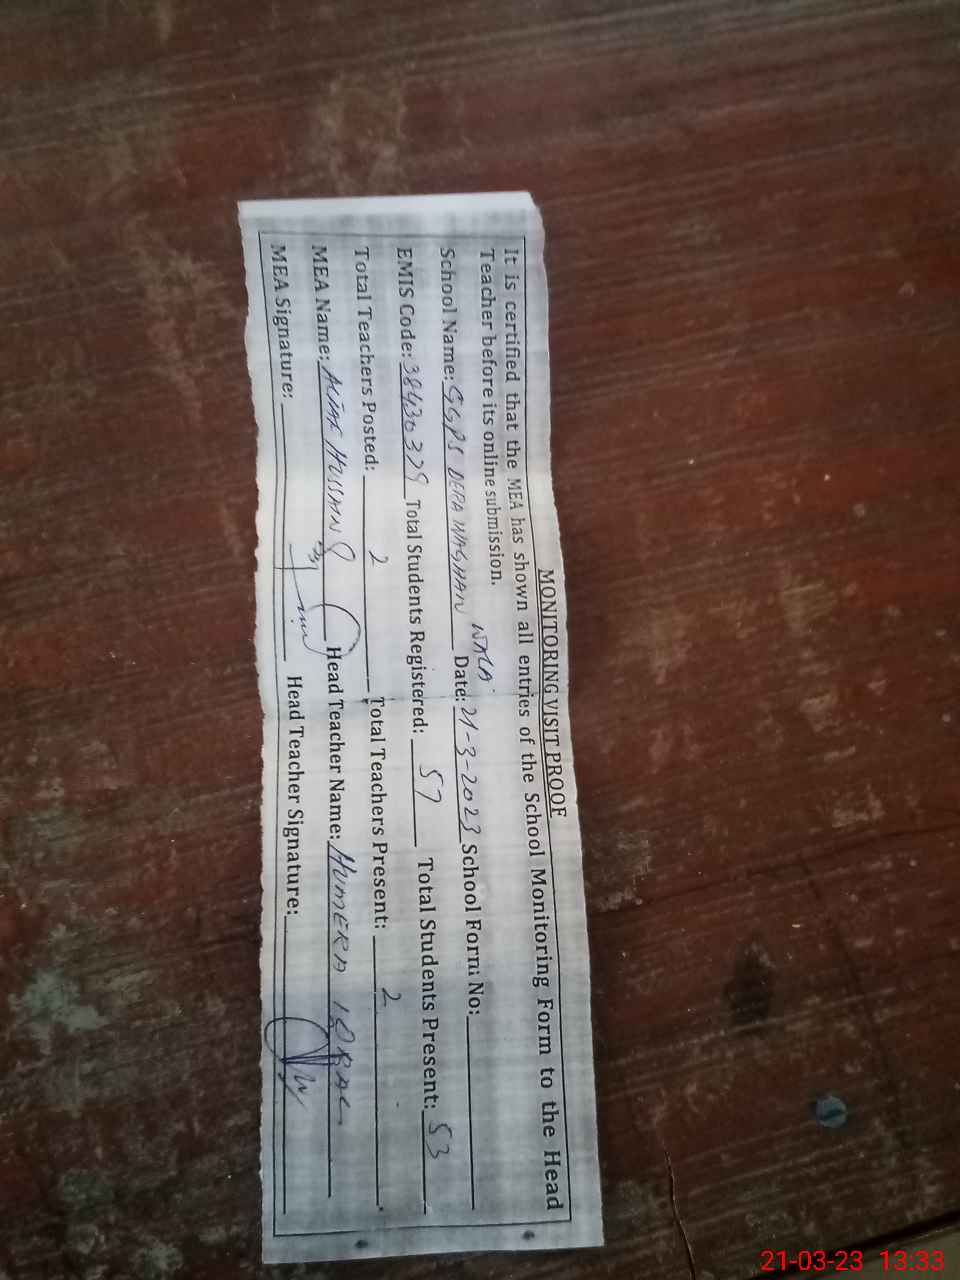 MONITORING VISIT PROOF
It is certified that the MEA has shown all entries of the School Monitoring Form to the Head
Teacher before its online submission.
School Name: GGPS DERA WAGHAN WALA Date: 21-3-2023 School Form No:
EMIS Code: 38430379 Total Students Registered: 57 Total Students Present: 53
Total Teachers Posted: 2 Total Teachers Present: 2
MEA Name: HUSSAN Head Teacher Name: HUMERA IQBAL
MEA Signature: Head Teacher Signature:
21-03-23 13:33